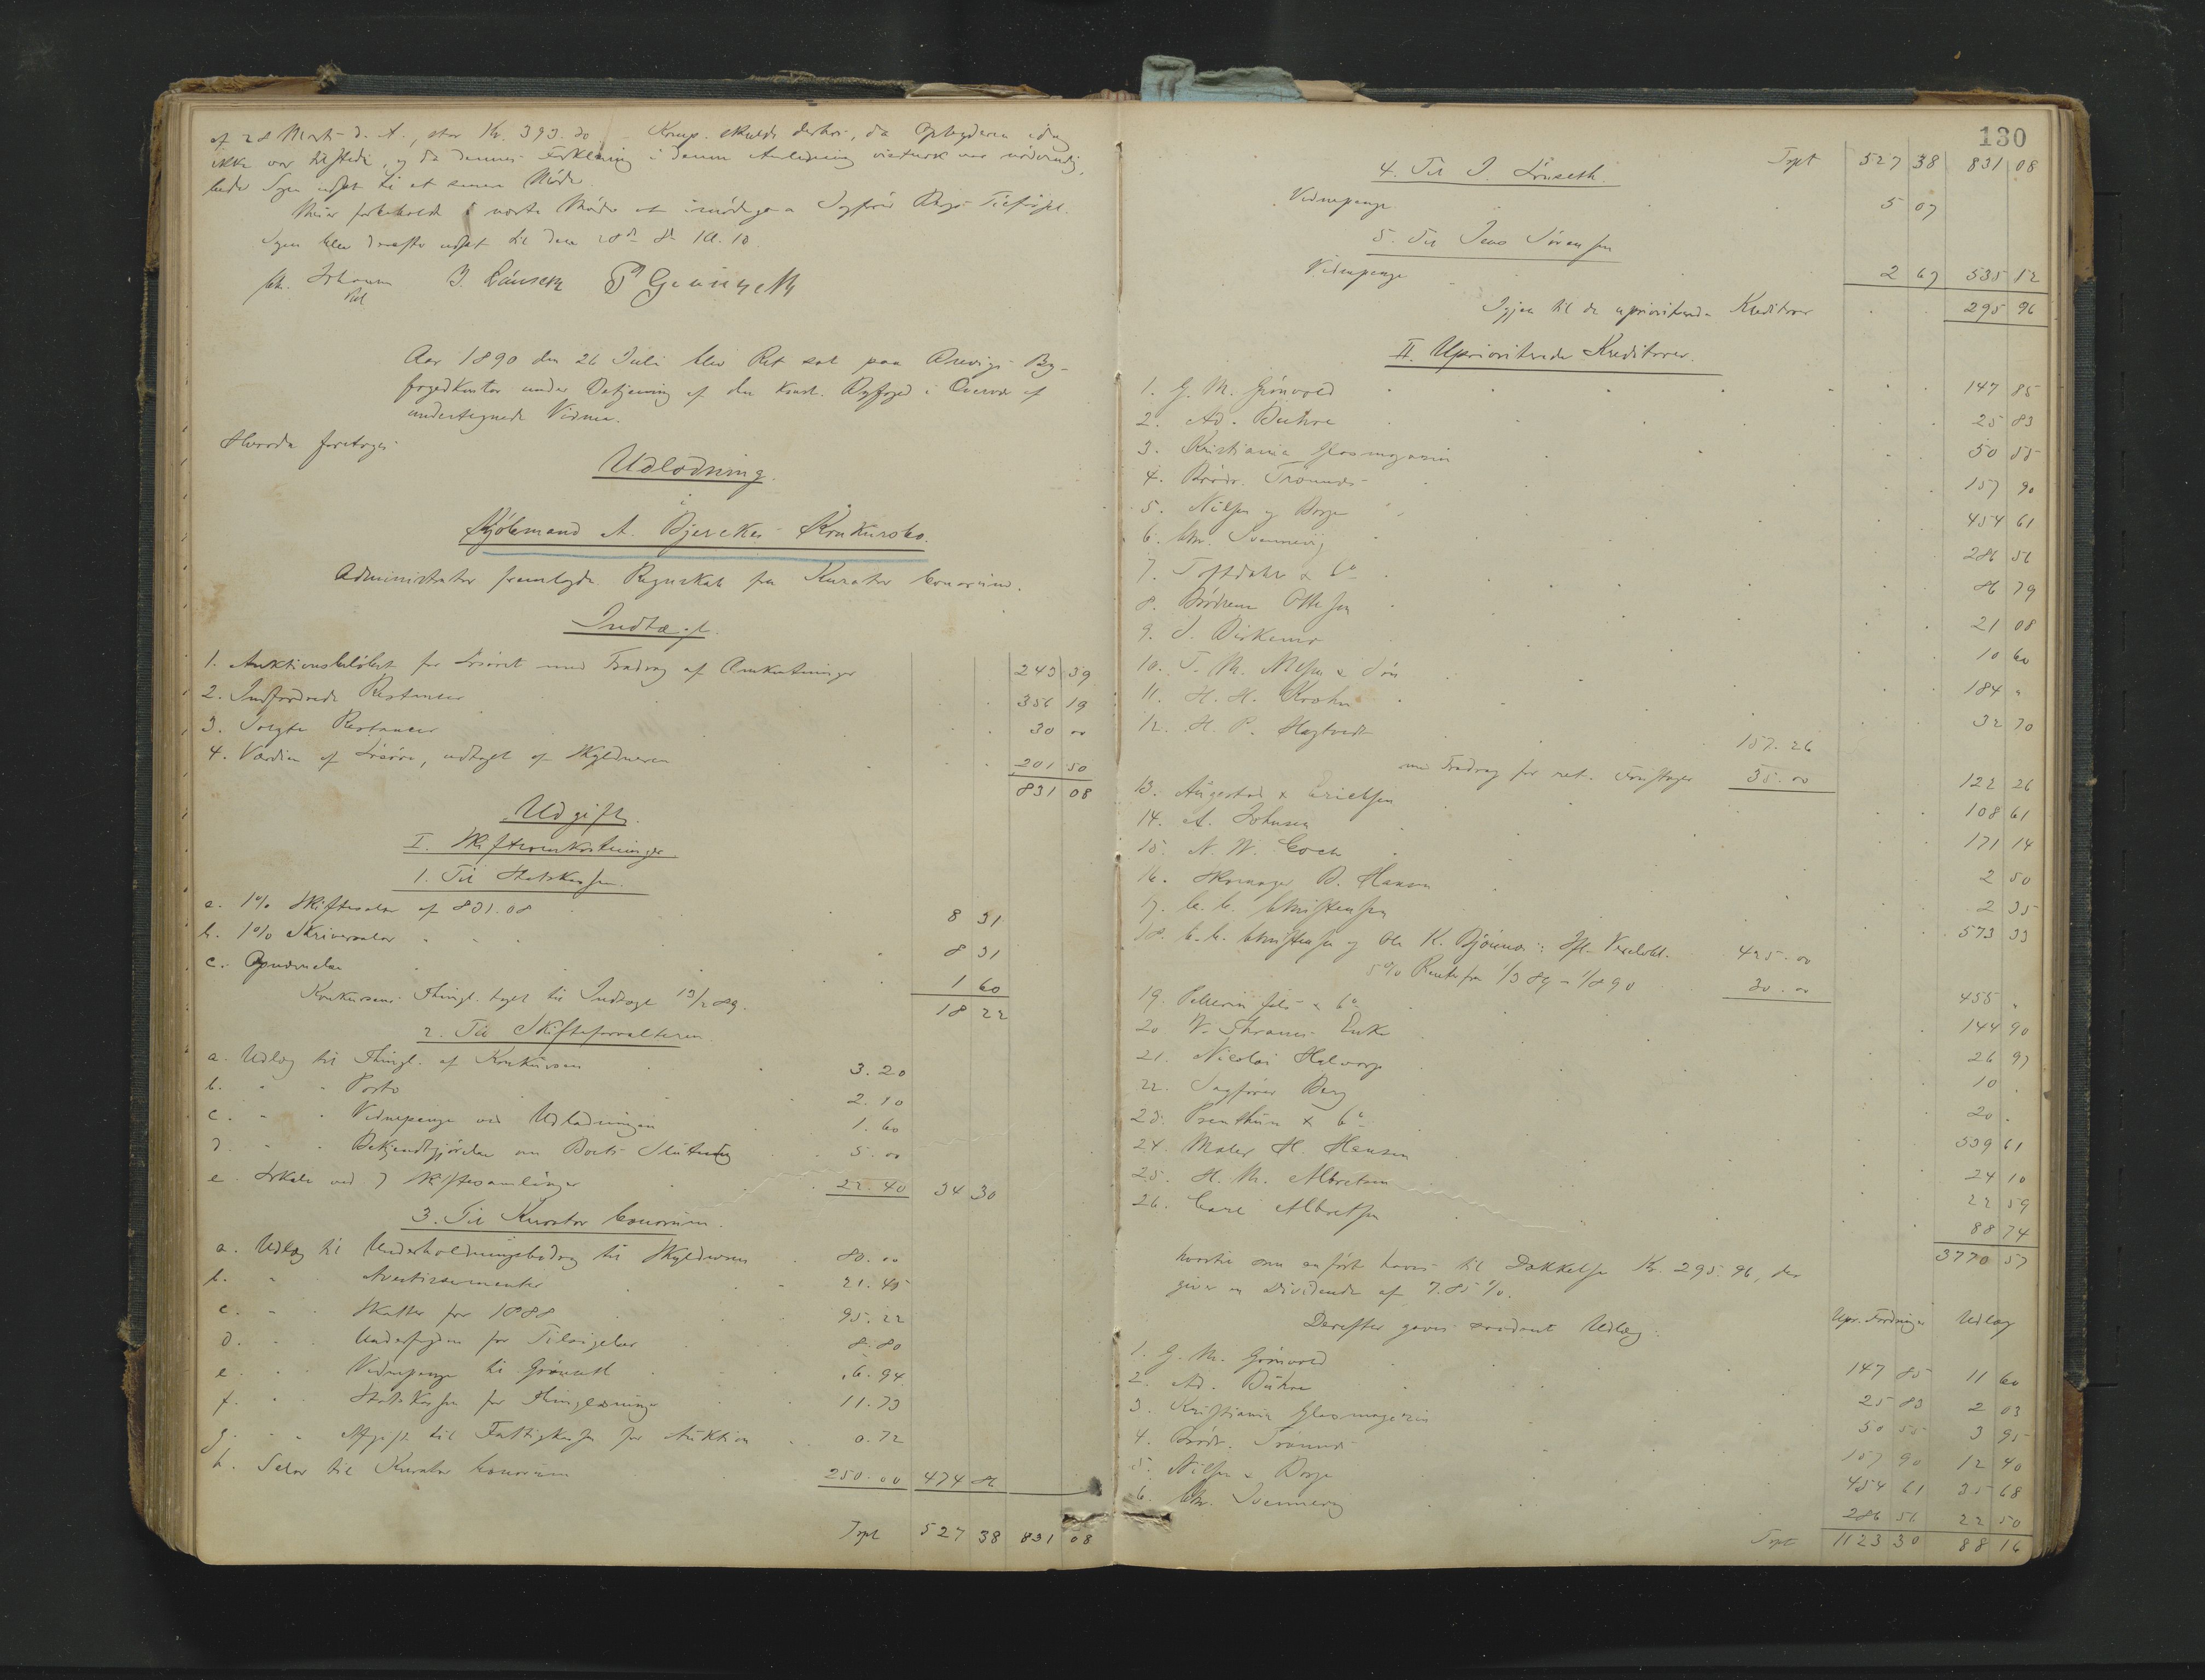 af 28 Marts d. A., stor Kr. 393.20 Komp. skulde derhos, da Opbyderen idag
ikke var tilstede, og da dennes Forklaring i denne Anledning var nødvendig,
bede Sagen udsat til et senere Møde.
forbeholdt i næste Møde at imødegaa Sagfører Bergs Tilførsel.
Sagen blev derefter udsat til den 28de ds. Kl. 10.
Chr. Johansen J. Lønseth P Grønseth
Aar 1890 den 26 Juli blev Ret sat paa Brevigs By-
fogedkontor under Betjening af den konst. Byfoged i Overvær af
undertegnede Vidner.
Hvorda foretoges
Udlodning
i
Kjøbmand A. Bjerckes Konkursbo.
Administrator fremlagde Regnskab fra Kurator bonorum.
Indtægt.
1. Auktionsbeløbet for Løsøret med Fradrag af Omkostninger 243 39
2. Indfordrede Restancer 356 19
3. Solgte Restancer 30 00
4. Værdien af Løsøre, udtaget af Skyldneren 201 50
831 08
Udgift.
I. Skifteomkostninger
1. Til Statskassen.
a. 1% Skiftesalær af 831.08 8 31
b. 1% Skriversalær 8 31
c. Opnævnelse 1 60
Konkursens Thingl. taget til Indtægt 13/2 89. 18 22
2. Til Skifteforvalteren.
a. Udlæg til Thingl. af Konkursen 3.20
b. " " Porto 2.10
c. " " Vidnepenge ved Udlodningen 1.60
d " " Bekjendtgjørelse om Boets Slutning 5.00
e. Lokale ved 7 Skiftesamlinger 22.40 34 30
3. Til Kurator bonorum.
a. Udlæg til Underholdningsbidrag til Skyldneren 80.00
b. " Avertissementer 21.45
c. " " Skatter for 1888 95.22
d. " Underfogden for Tilsigelser 8.80
e. " Vidnepenge til Grønseth 6.94
f. " Statskassen for Thinglæsninger 11.73
g. " " Afgift til Fattigkassen for Auktion 0.72
h. Salær til Kurator bonorum 250.00 474 86
Trpt 527 38 831 08
130
Trpt 527 38 831 08
4. Til J. Lønseth.
Vidnepenge 5 07
5. Til Jens Sørensen
Vidnepenge 2 67 535 12
Igjen til de uprioriterede Kreditorer 295 96
II. Uprioriterede Kreditorer.
1. G. M. Grønvold 147 85
2. Ad. Buhre 25 83
3. Kristiania Glasmagasin 50 55
4. Brødr. 157 90
5. Nilsen og Borge 454 61
6. Chr. Svennevig 286 56
7. Toftdahl & Co 86 79
8. Brødrene Ottesen 21 08
9. J. Dirkema 10 60
10. T. M. Nilsen & Søn 184 "
11. H. H. Krohn 32 70
12. H. P. Hagtvedt 157.26
med Fradrag for ret. Fustager 35.00 122 26
13. Augestad & Erichsen 108 61
14. A. Johnsen 171 14
15. N. W. Coch 2 50
16. Skomager B. Hansen 2 35
17. C. C. Christensen 573 33
18. C. C. Christensen og Ole K. Bjønnes ifl. Vexelobl. 425.00
5% Rente fra 1/3 89 - 1/8 90 30.00 455 "
19. Pellerin fils & Co 144 90
20 W. Thranes Enke 26 97
21. Nicolai Halvorsen 10 .
22. Sagfører Berg 20 .
23. Prenthun & Co 539 61
24. Maler H. Hansen 24 10
25. H. M. Albretsen 22 59
26. Carl Albretsen 88 74
3770 57
hvortil som anført haves til Dækkelse Kr. 295.96, der
giver en Dividende af 7.85%.
Derefter gaves saadant Udlæg: Upr. Fordringer Udlæg
1. G. M. Grønvold 147 85 11 60
2. Ad. Buhre 25 83 2 03
3. Kristiania Glasmagasin 50 55 3 95
4. Brødr. 157 90 12 40
5. Nilsen & Borge 454 61 35 68
6. Chr. Svennevig 286 56 22 50
Trpt 1123 30 88 16